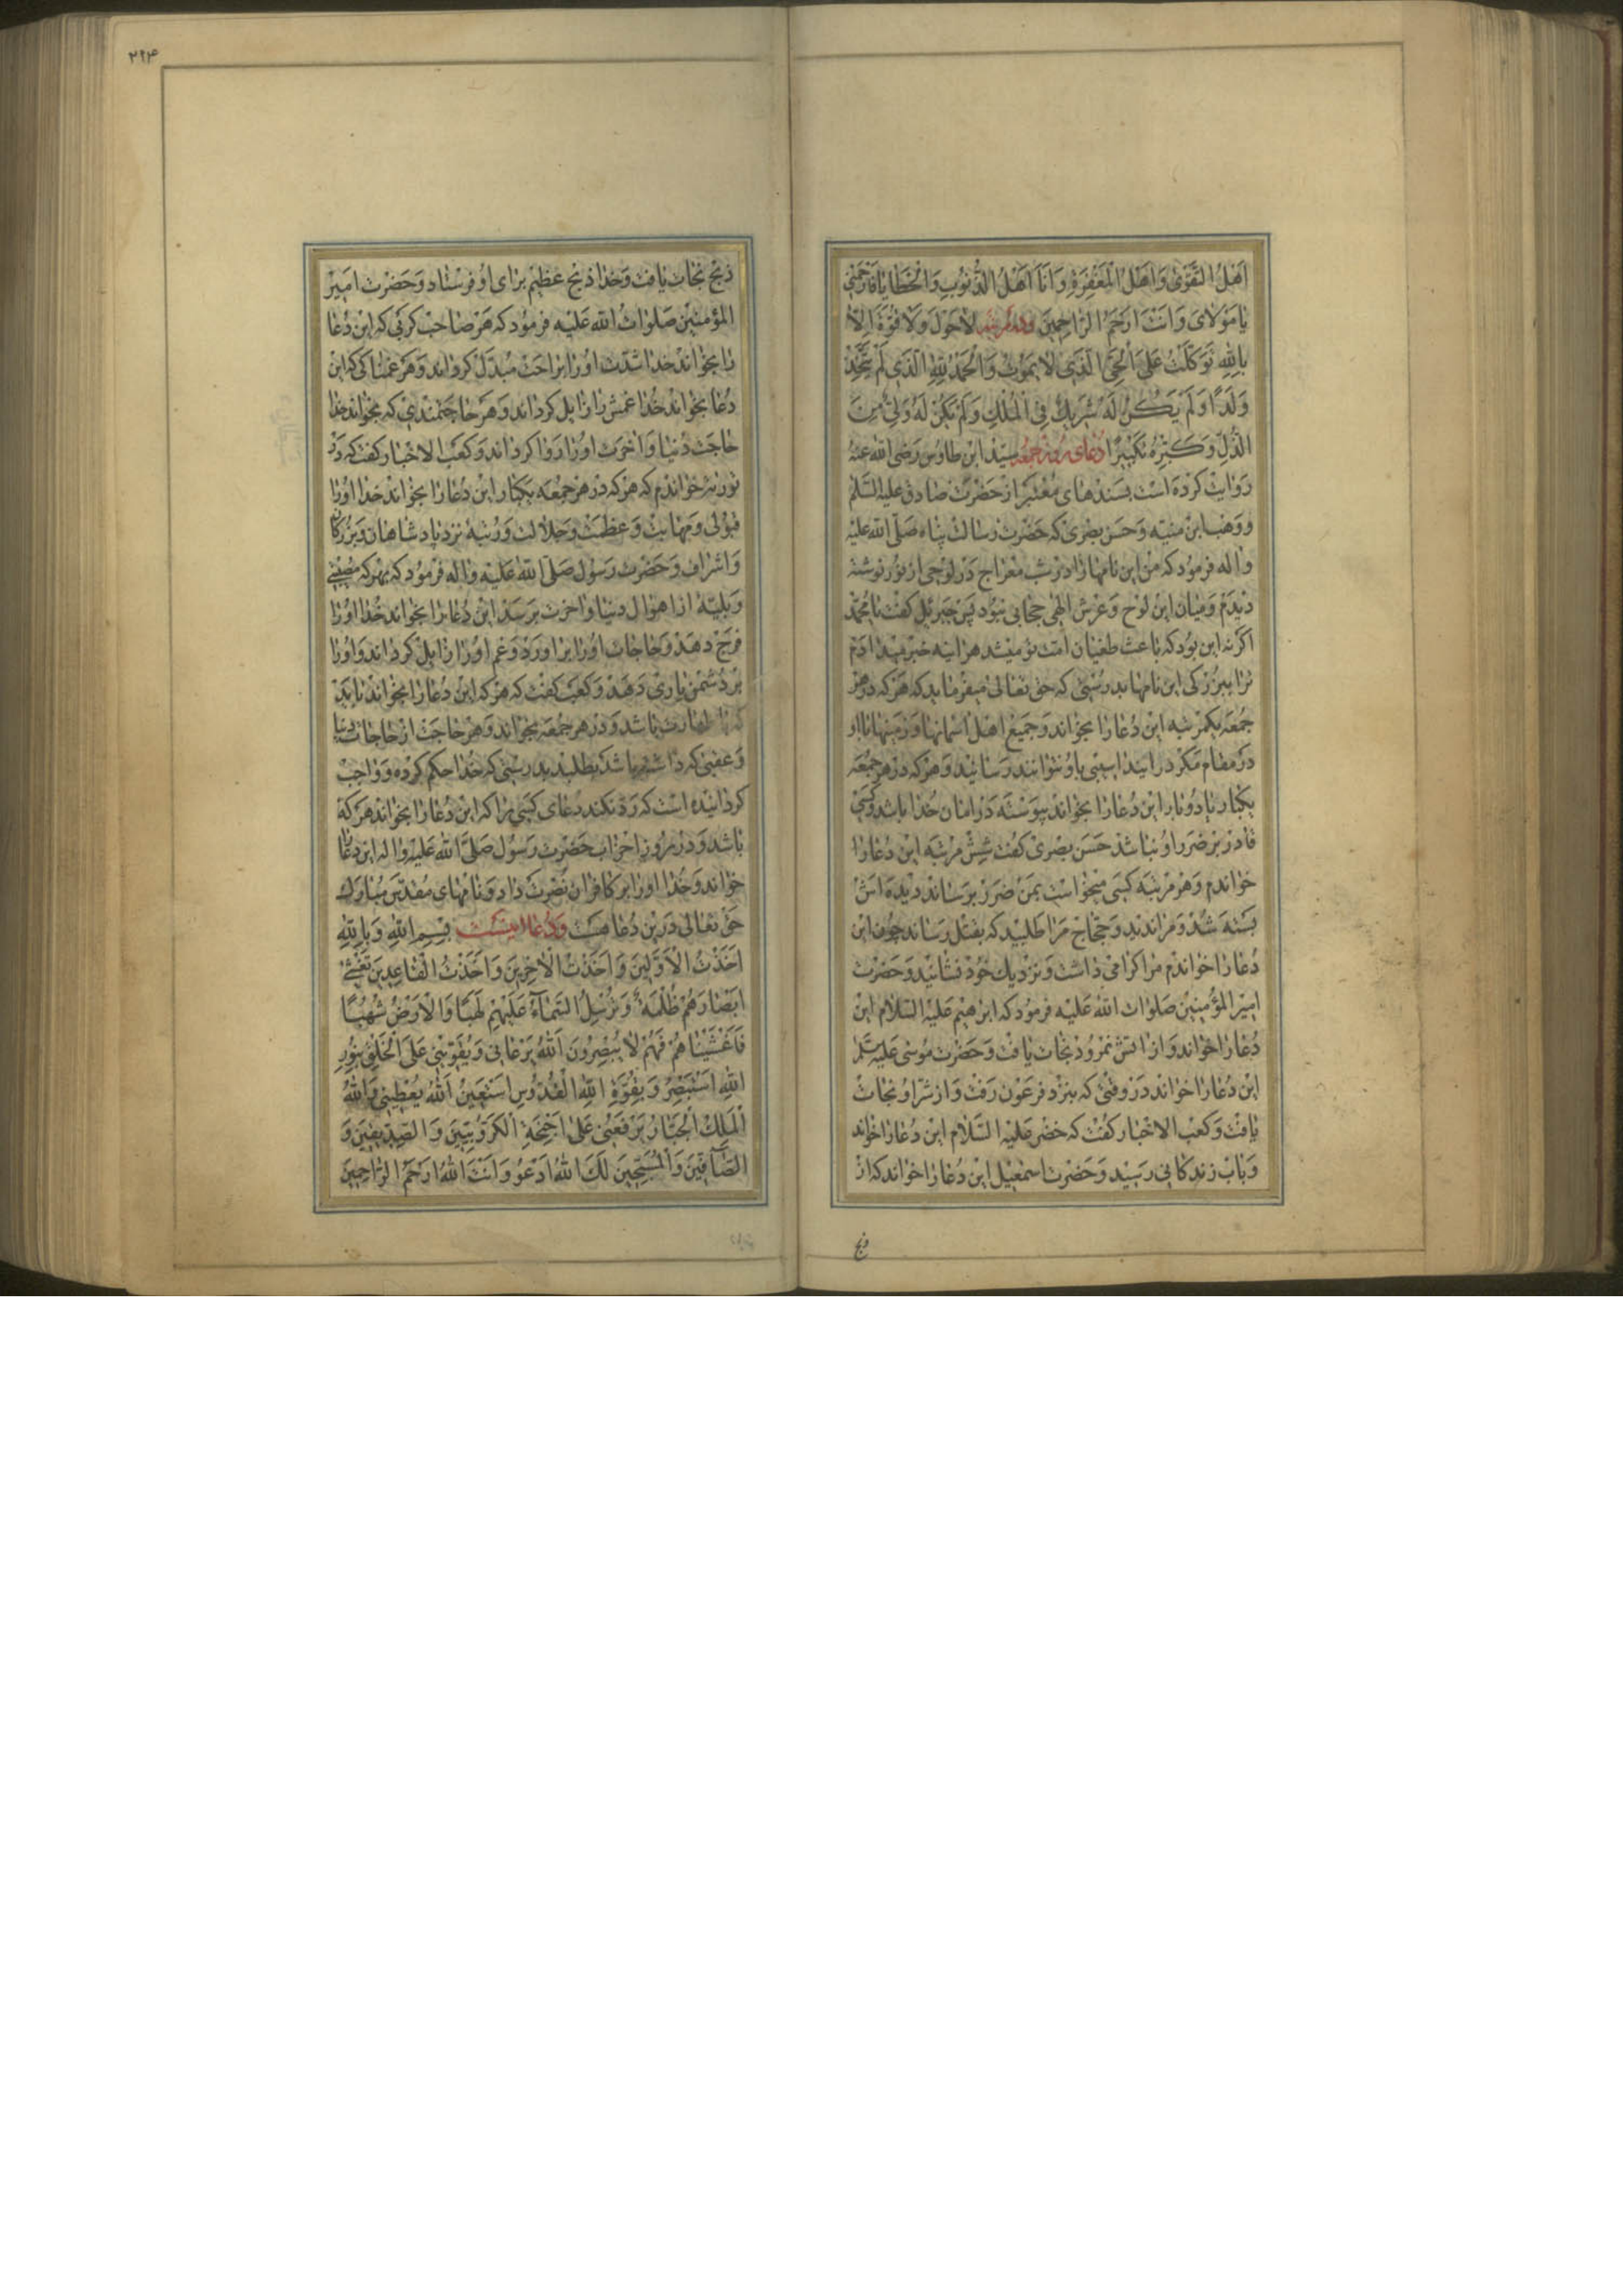 اَهْلُ التَّقْوٰی وَاَهْلُ الْمَغْفِرَةِ وَاَنَا اَهْلُ الذُّنُوبِ وَالْخَطَايَا فَارْحَمْنِی
يَا مَوْلَایَ وَاَنْتَ اَرْحَمُ الرَّاحِمِينَ وده مرتبه لَاحَوْلَ وَلَا قُوَّةَ اِلَّا
بِاللّٰهِ تَوَكَّلْتُ عَلَی الْحَیِّ الَّذِی لَا يَمُوتُ وَالْحَمْدُ لِلّٰهِ الَّذِی لَمْ يَتَّخِذْ
وَلَدًا وَلَمْ يَكُنْ لَهُ شَرِيكٌ فِی الْمُلْكِ وَلَمْ يَكُنْ لَهُ وَلِیٌّ مِنَ
الذُّلِّ وَكَبِّرْهُ تَكْبِيرًا دعای روز جمعه سیّد ابن طاوس رضی الله عنه
روایت کرده است بسندهای معتبر از حضرت صادق علیه السلم
و وهب ابن منبّه و حسن بصری که حضرت رسالت پناه صلّی الله علیه
و اله فرمود که من این نامها را در شب معراج در لوحی از نور نوشته
دیدم و میان این لوح و عرش الهی حجابی نبود پس جبرئیل گفت یا محمّد
اگر نه این بود که باعث طغیان امت تو میشد هر اینه خبر میدادم
ترا ببزرکی این نامها بدرستی که حق تعالی میفرماید که هر که در هر
جمعه یکمرتبه این دعا را بخواند و جمیع اهل اسمانها و زمینها با او
در مقام مکر درایند اسیبی باو نتوانند رسانید و هر که در هر جمعه
یکبار یا دو بار این دعا را بخواند پیوسته در امان خدا باشد و کسی
قادر بر ضرر او نباشد حسن بصری گفت شش مرتبه این دعا را
خواندم و هر مرتبه کسی میخواست بمن ضرر برساند دیده اش
بسته شد و مرا ندید و حجّاج مرا طلبید که بقتل رساند چون این
دعا را خواندم مرا کرامی داشت و نزدیك خود نشانید و حضرت
امیر المؤمنین صلوات الله علیه فرمود که ابرهیم علیه السلام این
دعا را خواند و از اتش نمرود نجات یافت و حضرت موسی علیه سلم
این دعا را خواند در وقتی که بنزد فرعون رفت و از شرّ او نجات
یافت و کعب الاخبار گفت که خضر علیه السلام این دعا را خواند
و باب زندکانی رسید و حضرت اسمعیل این دعا را خواند که از
ذبح
۲۹۴
ذبح نجات یافت و خدا ذبح عظیم برای او فرستاد و حضرت امیر
المؤمنین صلوات الله علیه فرمود که هر صاحب کربی که این دعا
را بخواند خدا شدّت او را براحت مبدّل کرداند و هر غمناکی که این
دعا بخواند خدا غمش را زایل کرداند و هر حاجتمندی که بخواند خدا
حاجت دنیا و اخرت او را روا کرداند و کعب الاخبار گفت که در
توریة خواندم که هر که در هر جمعه یکبار این دعا را بخواند خدا او را
قبولی و مهابت و عظمت و جلالت و رتبه نزد پادشاهان و بزرکان
و اشراف و حضرت رسول صلّی الله علیه و اله فرمود که بهر که مصیبتی
و بلیّهٔ از اهوال دنیا و اخرت برسد این دعا را بخواند خدا او را
فرج دهد و حاجات او را براورد و غم او را زایل کرداند و او را
بر دشمن یاری دهد و کعب گفت که هر که این دعا را بخواند باید
که با طهارت باشد و در هر جمعه بخواند و هر حاجت از حاجات دنیا
و عقبی که داشته باشد بطلبد بدرستی که خدا حکم کرده و واجب
کردانیده است که رد نکند دعای کسی را که این دعا را بخواند هر که
باشد و در روز احزاب حضرت رسول صلّی الله علیه و اله این دعا را
خواند و خدا او را بر کافران نصرت داد و نامهای مقدّس مبارك
حق تعالی درین دعا هست و دعا اینست بِسْمِ اللّٰهِ وَبِاللّٰهِ
اَخَذْتُ الْاَوَّلِينَ وَاَخَذْتُ الْاٰخِرِينَ وَاَخَذْتُ الْقَاعِدِينَ
اَبْصَارَهُمْ ظُلْمَةٌ وَنُرْسِلُ السَّمَاءَ عَلَيْهِمْ لَهَبًا وَالْاَرْضُ شُهُبًا
فَاَغْشَيْنَاهُمْ فَهُمْ لَا يُبْصِرُونَ اَللّٰهُ يَرْعَانِی وَيُقَوِّينِی عَلَی الْخَلْقِ بِنُورِ
اللّٰهِ اَسْتَبْصِرُ وَبِقُوَّةِ اللّٰهِ الْقُدُّوسِ اَسْتَعِينُ اَللّٰهُ يُعْطِينِی وَاللّٰهُ
الْمَلِكُ الْجَبَّارُ يَرْفَعُنِی عَلٰی اَجْنِحَةِ الْكَرُّوبِيِّينَ وَالصِّدِّيقِينَ وَ
الصَّافِّينَ وَالْمُسَبِّحِينَ لَكَ اللّٰهُ اَدْعُو وَاَنْتَ اللّٰهُ اَرْحَمُ الرَّاحِمِينَ